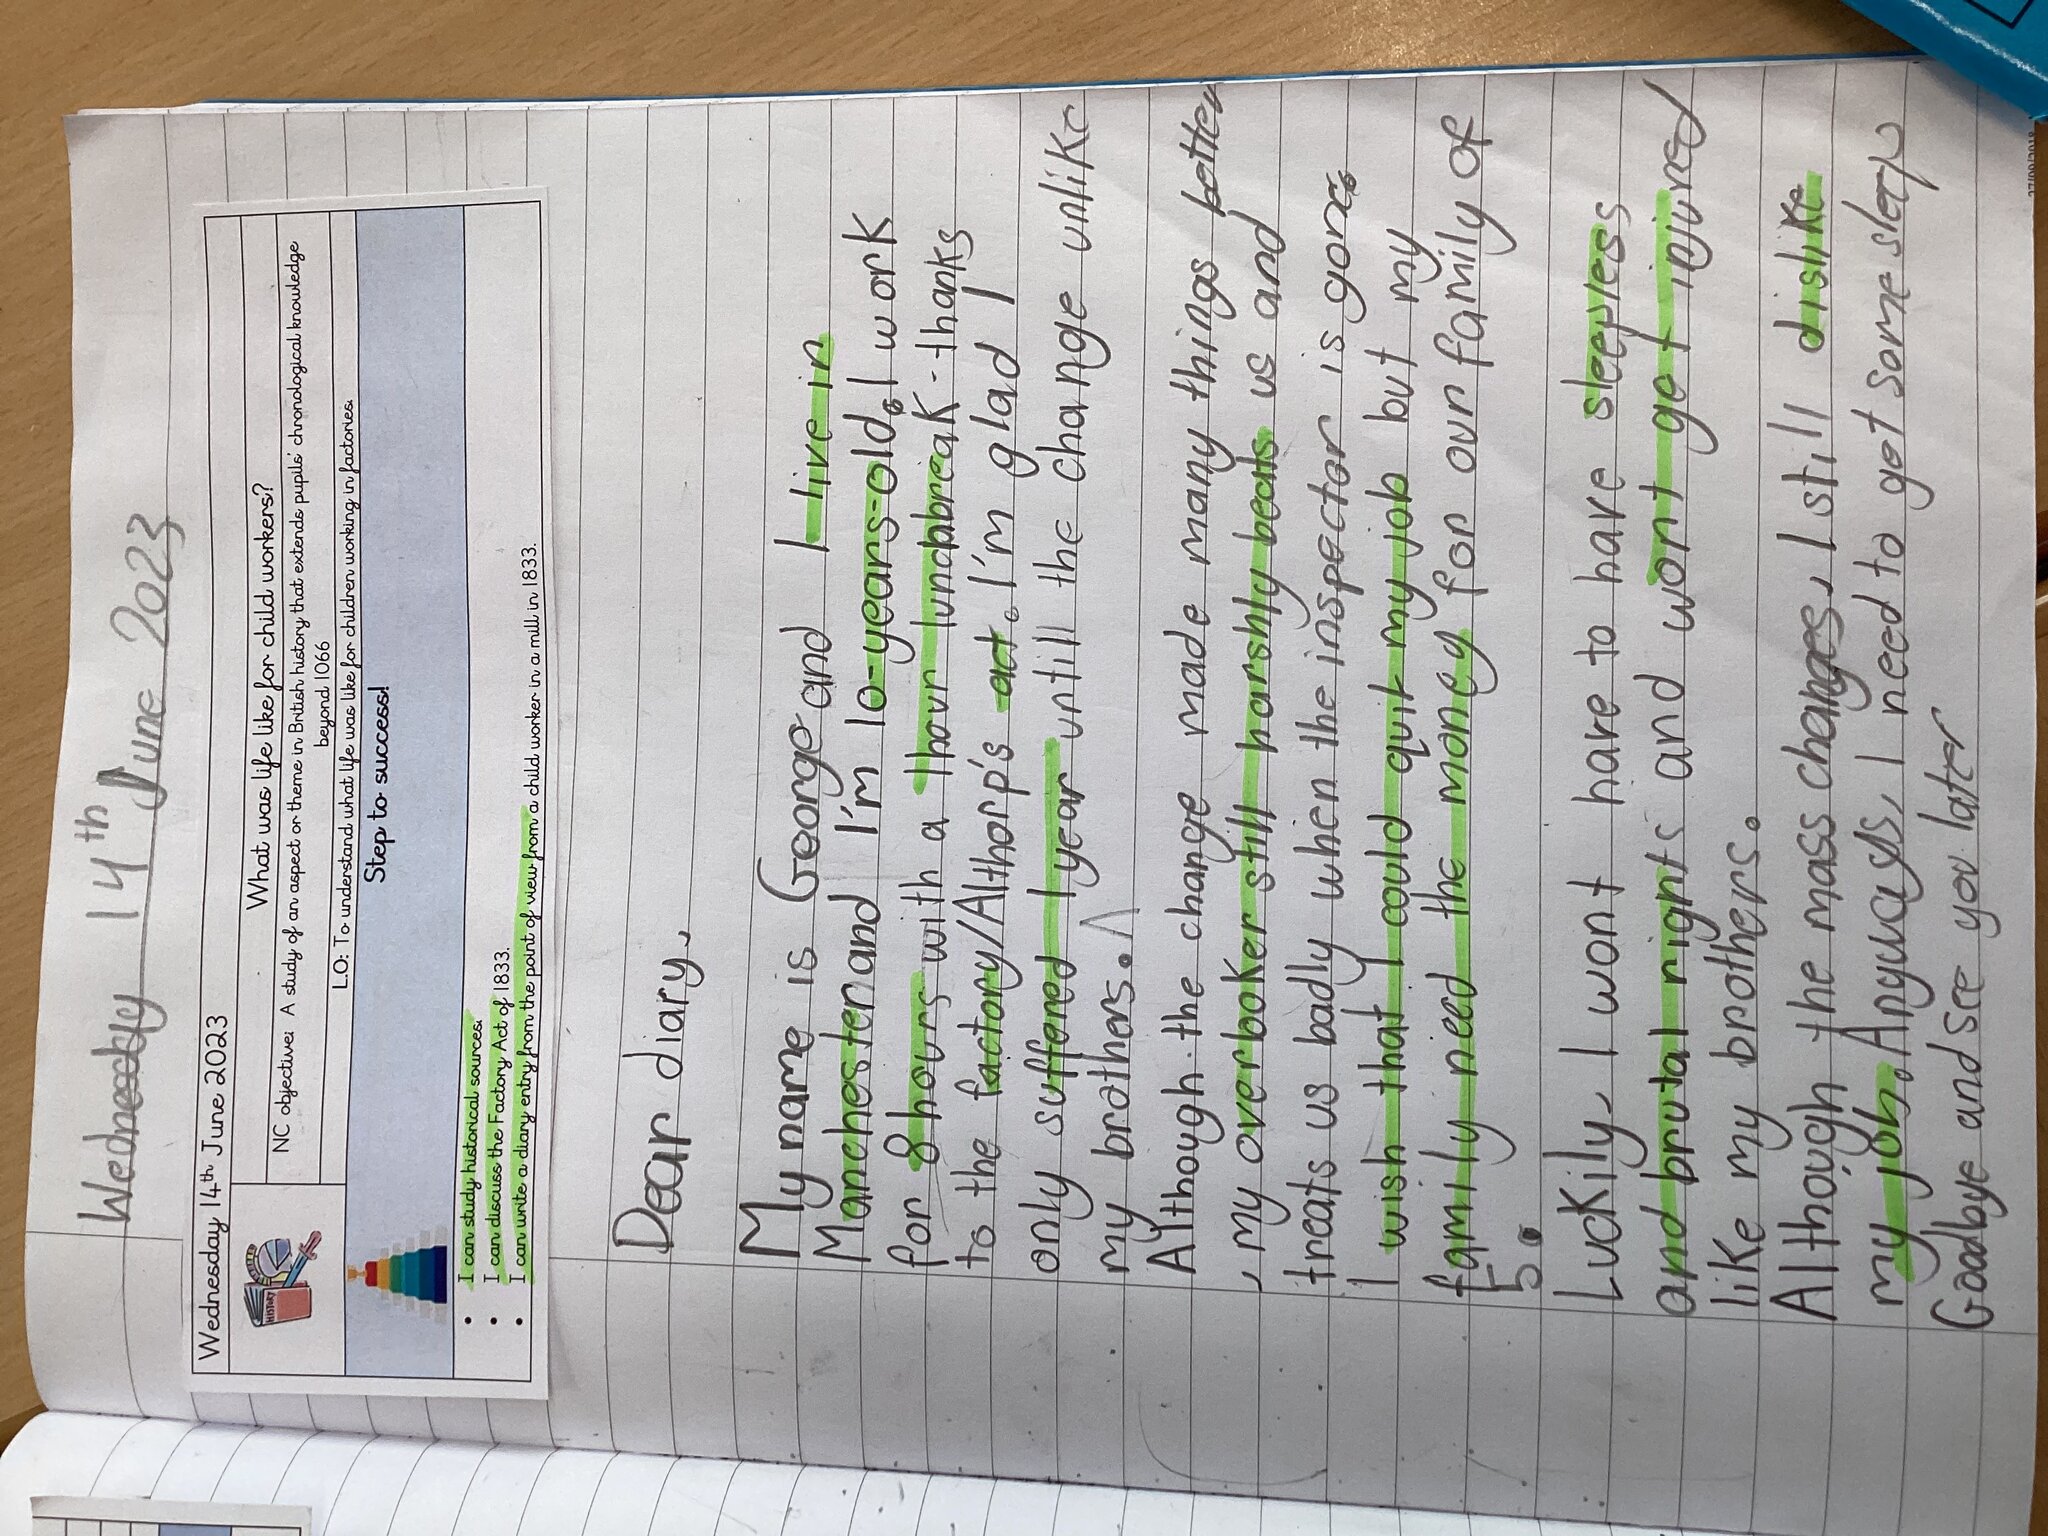 Wednesday 14th June 2023
Wednesday 14th June 2023
HISTORY
What was life like for child workers?
NC objective: A study of an aspect or theme in British history that extends pupils' chronological knowledge
beyond 1066
L.O: To understand what life was like for children working in factories.
Step to success!
• I can study historical sources.
• I can discuss the Factory Act of 1833.
• I can write a diary entry from the point of view from a child worker in a mill in 1833.
Dear diary,
My name is George and I live in
Manchester and I'm 10-years-old. I work
for 8 hours with a 1 hour lunchbreak - thanks
to the factory/Althorp's act. I'm glad I
only suffered 1 year untill the change unlike
my brothers.
Although the change made many things better
, my overboker still harshly beats us and
treats us badly when the inspector is gone.
I wish that I could quit my job but my
family need the money for our family of
5.
Luckily, I wont have to have sleepless
and brutal nights and wont get injured
like my brothers.
Although the mass changes, I still dislike
my job. Anyways, I need to get some sleep
Goodbye and see you later
27/09/2018